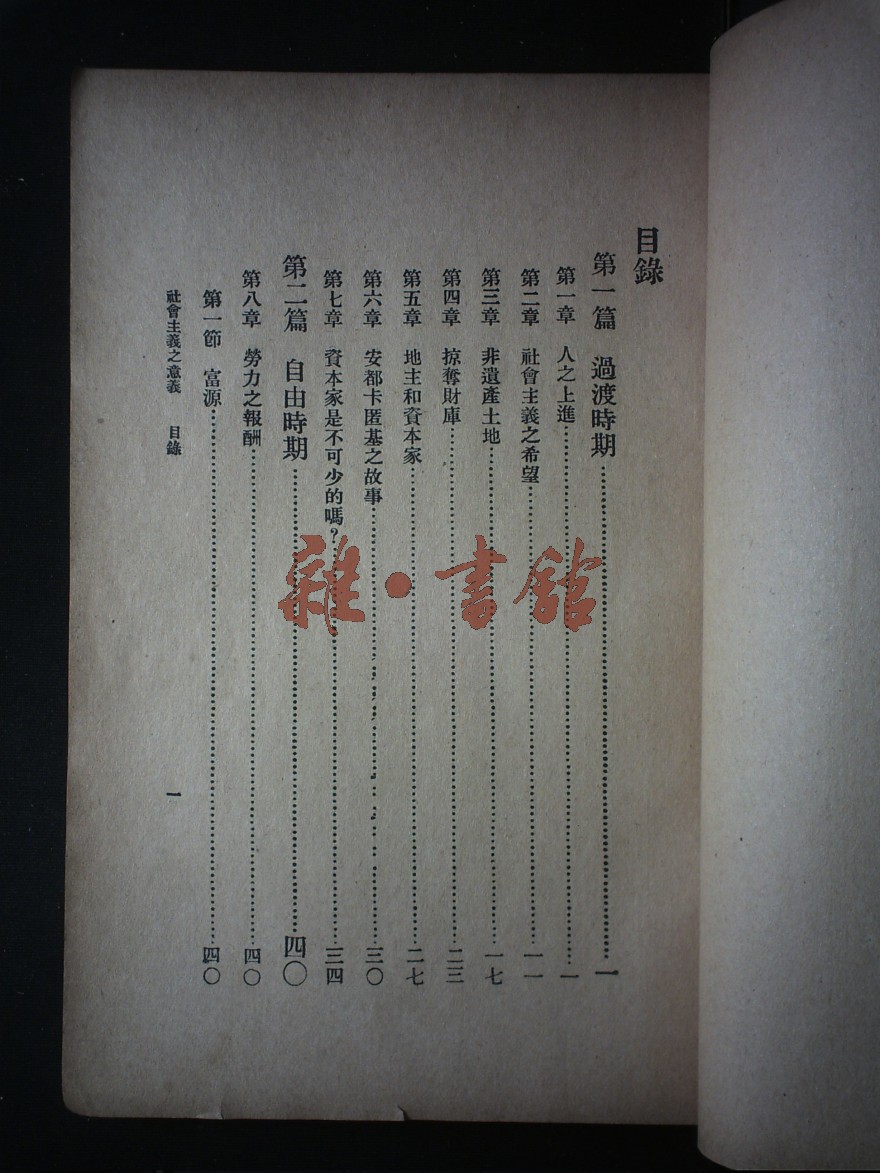 目錄
第一篇 過渡時期……一
第一章 人之上進……一
第二章 社會主義之希望……一一
第三章 非遺產土地……一七
第四章 掠奪財庫……二三
第五章 地主和資本家……二七
第六章 安都卡匿基之故事……三〇
第七章 資本家是不可少的嗎？……三四
第二篇 自由時期……四〇
第八章 勞力之報酬……四〇
第一節 富源……四〇
社會主義之意義 目錄 一
雜·書館